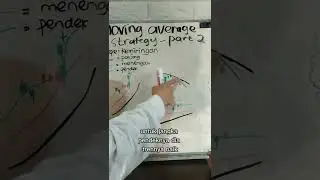 = meneng
= pender
moving average
strategy - part 2
Kemiringan
= panjang
= menengah
= pender
untuk jangka
pendeknya dia
trennya naik